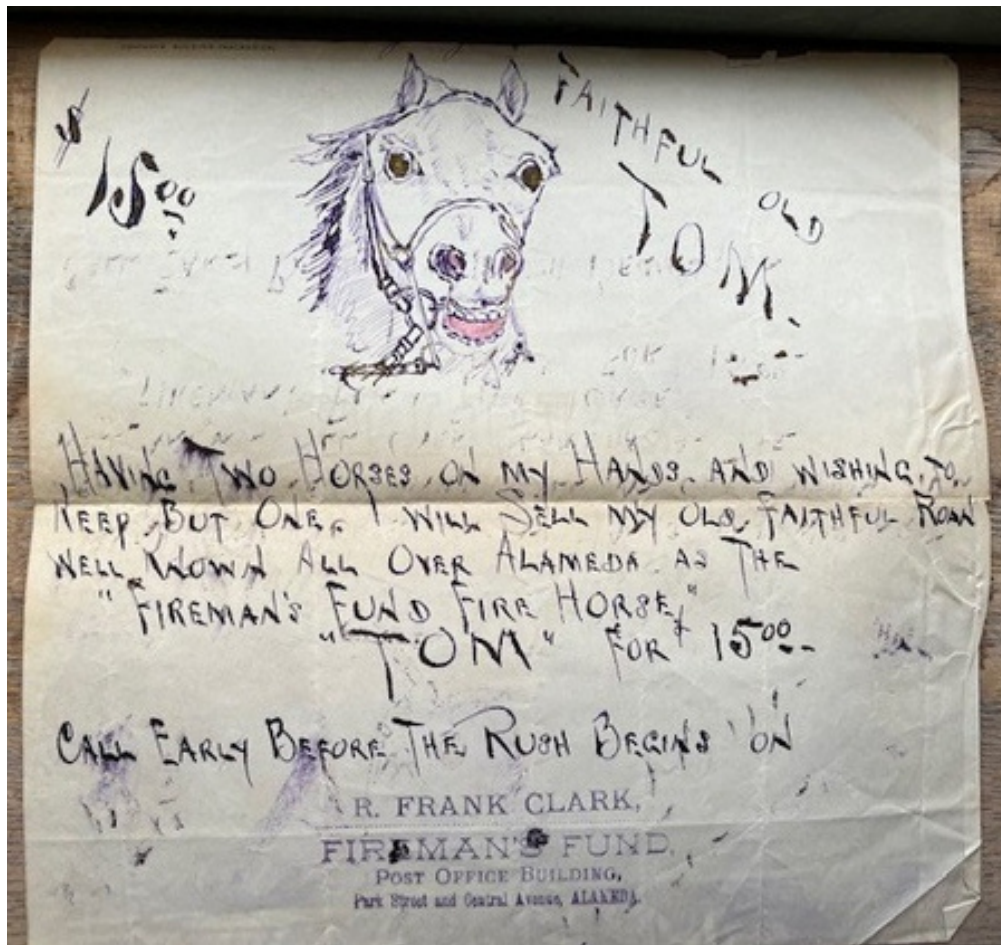 $
15 00
FAITHFUL OLD
TOM.
HAVING TWO HORSES ON MY HANDS, AND WISHING TO
KEEP BUT ONE, I WILL SELL MY OLD FAITHFUL ROAN
WELL KNOWN ALL OVER ALAMEDA AS THE
"FIREMAN'S FUND FIRE HORSE,"
"TOM" FOR 15 00
CALL EARLY BEFORE THE RUSH BEGINS ON
R. FRANK CLARK,
FIREMAN'S FUND,
POST OFFICE BUILDING,
Park Street and Central Avenue, ALAMEDA.